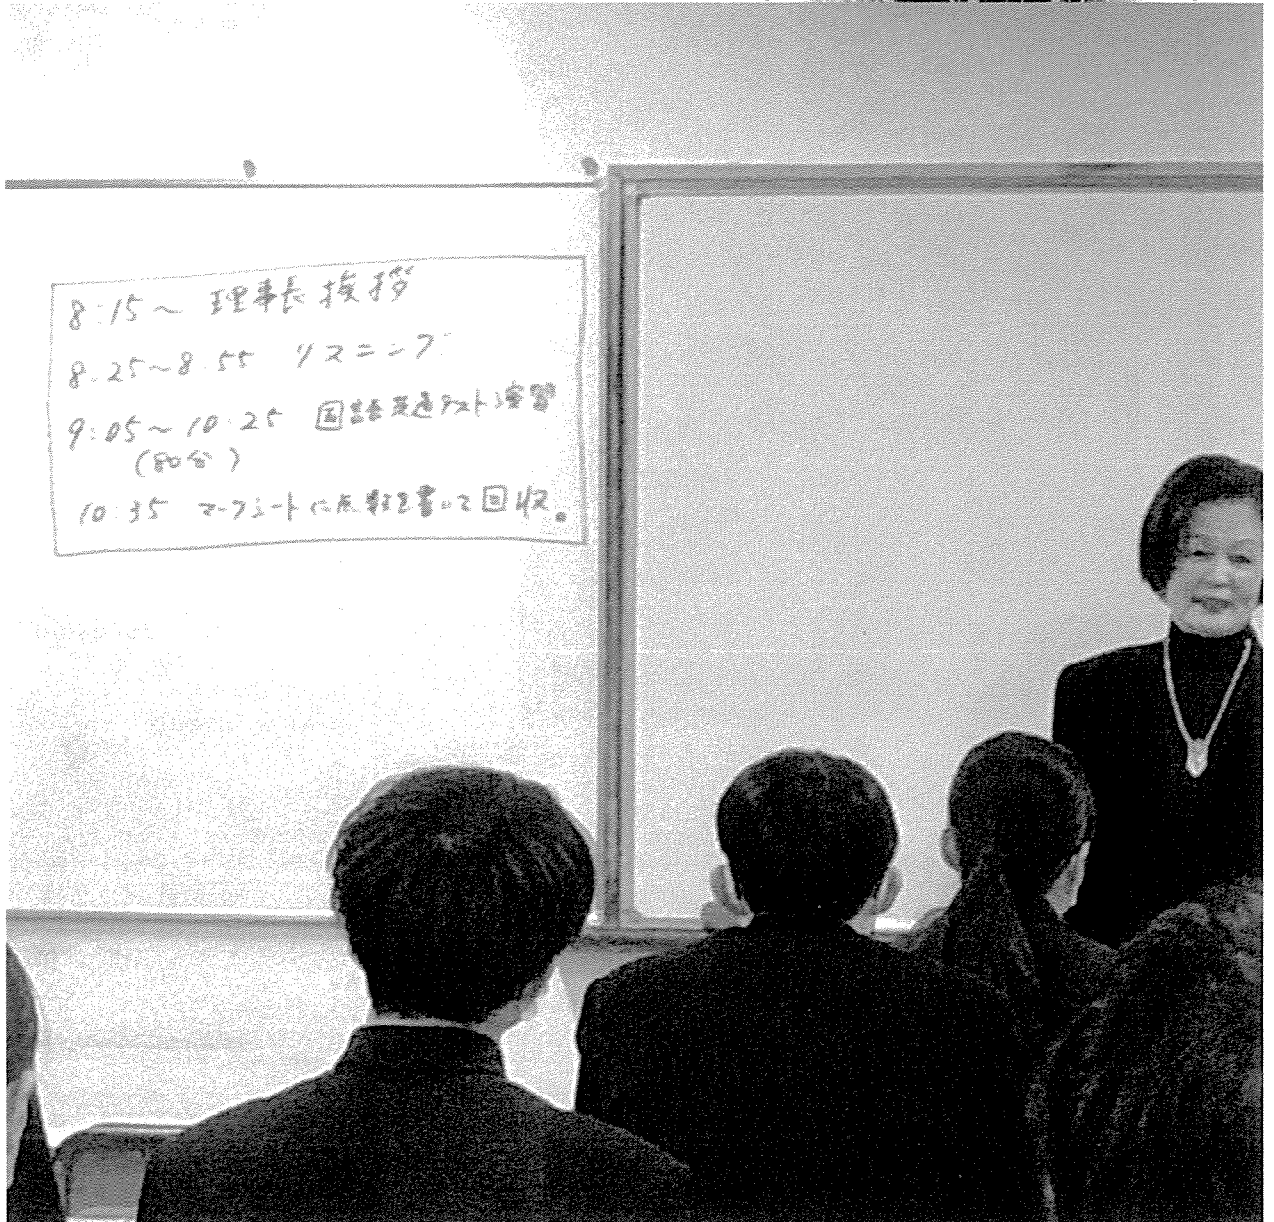 8:15～ 理事長挨拶
8:25～8:55 リスニング
9:05～10:25 国語共通テスト演習
(80分)
10:35 マークシートに点数を書いて回収。